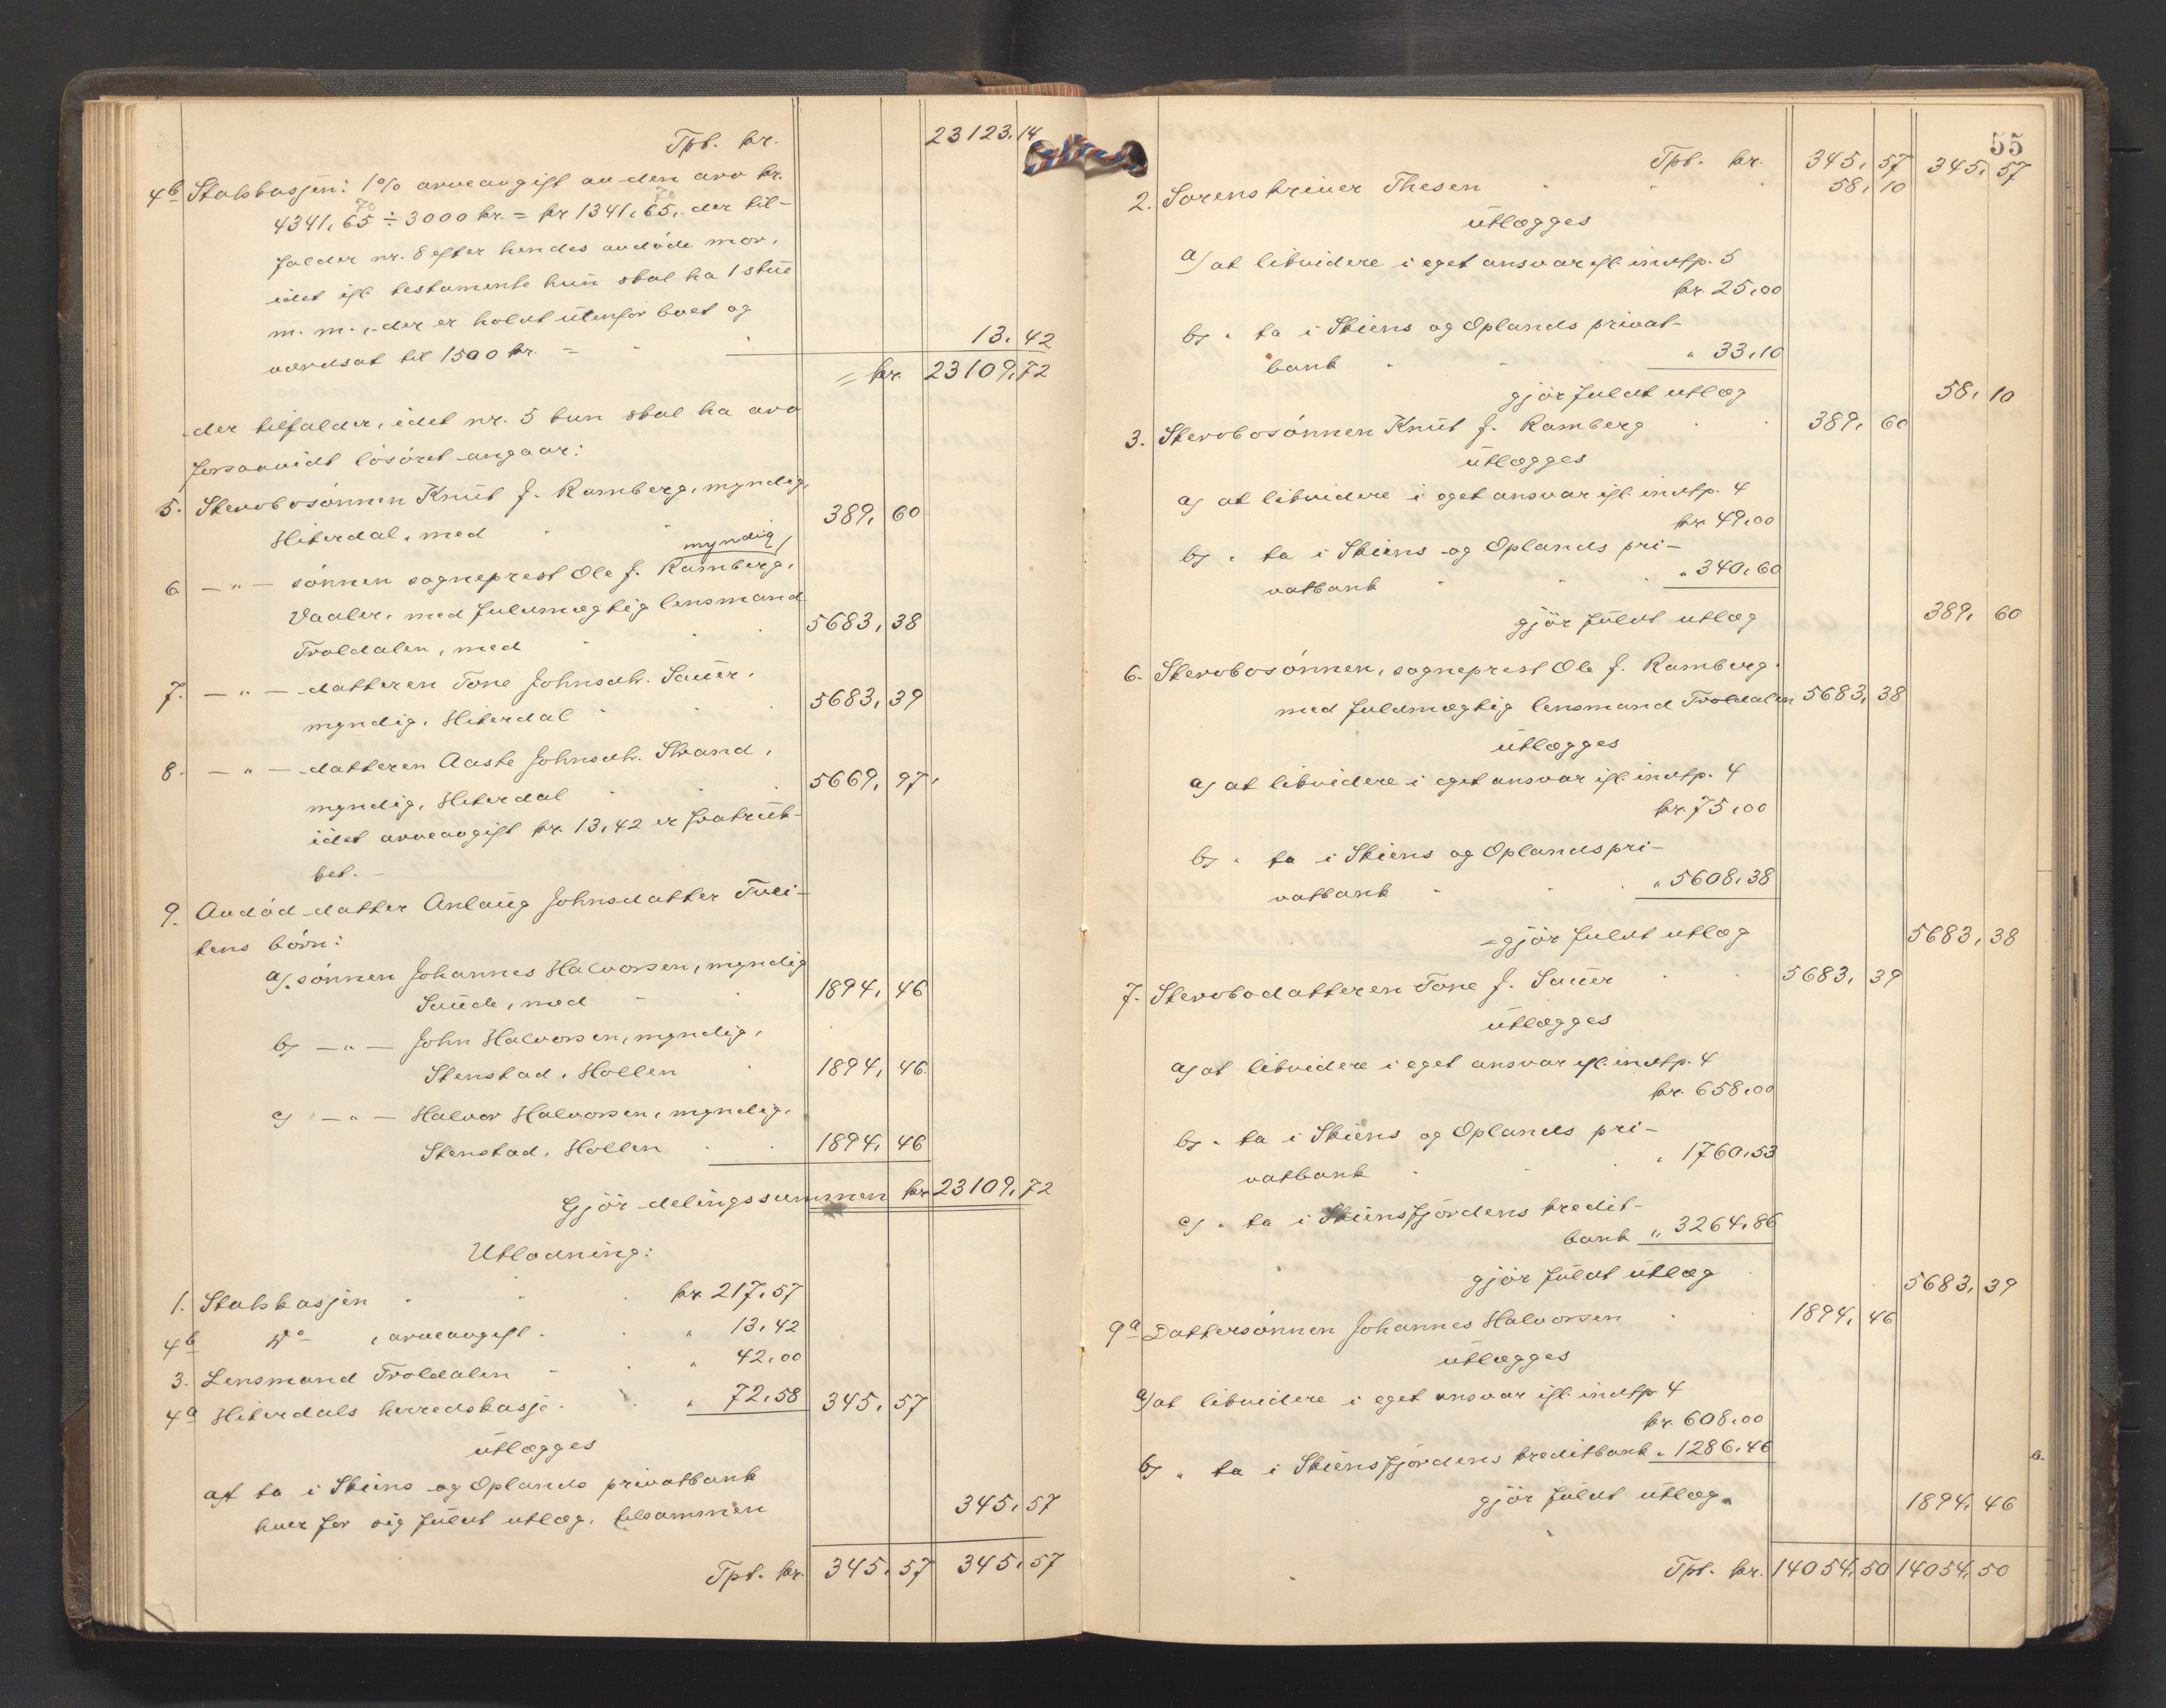 Tpt. kr. 23123.14
4b Statskassen: 1% arveavgift av den arv kr.
70 70
4341,65 ÷ 3000 kr. = kr 1341,65, der til-
falder nr. 8 efter hendes avdöde mor,
idet ifl. testamente hun skal ha 1 stue
m. m., der er holdt utenfor boet og
værdsat til 1500 kr. = 13.42
= kr. 23109,72
der tilfalder, idet nr. 5 kun skal ha arv
forsaavidt lösöret angaar:
5. Stervbosönnen Knut J. Ramberg, myndig,
Hiterdal, med 389, 60
myndig,
6 — " — sönnen sogneprest Ole J. Ramberg,
Vaaler, med fuldmægtig lensmand
Troldalen, med 5683, 38
7. — " — datteren Tone Johnsdtr. Sauer,
myndig, Hiterdal 5683, 39
8. — " — datteren Aaste Johnsdtr. Strand,
myndig, Hiterdal 5669, 97,
idet arveavgift kr. 13,42 er fratruk-
ket. —
9. Avdöd datter Anlaug Johnsdatter Tvei-
tens börn:
a). sönnen Johannes Halvorsen, myndig
Saude, med 1894, 46
b) — " — John Halvorsen, myndig,
Stenstad, Hollen 1894, 46.
c) — " — Halvor Halvorsen, myndig,
Stenstad, Hollen 1894, 46
Gjör delingssummen kr 23109,72
Utlodning:
1. Statskassen kr 217,57
4b do , arveavgift. " 13,42
3. Lensmand Troldalen " 42,00
4a Hiterdals herredskasse. " 72,58 345, 57
utlægges
at ta i Skiens og Oplands privatbank
hver for sig fuldt utlæg, tilsammen 345, 57
Tpt. kr. 345, 57 345, 57
55
Tpt. kr. 345, 57 345, 57
2. Sorenskriver Thesen 58, 10
utlægges
a) at likvidere i eget ansvar ifl. indtp. 5
kr. 25,00
b) " ta i Skiens og Oplands privat-
bank " 33,10
gjör fuldt utlæg 58, 10
3. Stervbosönnen Knut J. Ramberg 389, 60
utlægges
a) at likvidere i eget ansvar ifl. indtp. 4
kr. 49,00
b) " ta i Skiens og Oplands pri-
vatbank " 340,60
gjör fuldt utlæg 389, 60
6. Stervbosönnen, sogneprest Ole J. Ramberg.
med fuldmægtig lensmand Troldalen 5683, 38
utlægges
a) at likvidere i eget ansvar ifl. indtp. 4
kr. 75,00
b) " ta i Skiens og Oplands pri-
vatbank " 5608,38
=gjör fuldt utlæg 5683, 38
7. Stervbodatteren Tone J. Sauer 5683, 39
utlægges
a) at likvidere i eget ansvar ifl. indtp. 4
kr. 658,00
b) " ta i Skiens og Oplands pri-
vatbank " 1760,53
c) " ta i Skiensfjordens kredit-
bank " 3264,86
gjör fuldt utlæg 5683, 39
9a Dattersönnen Johannes Halvorsen 1894, 46
utlægges
a) at likvidere i eget ansvar ifl. indtp 4
kr. 608,00
b) " ta i Skiensfjordens kreditbank " 1286,46
gjör fuldt utlæg. 1894, 46
Tpt. kr. 14054,50 14054,50